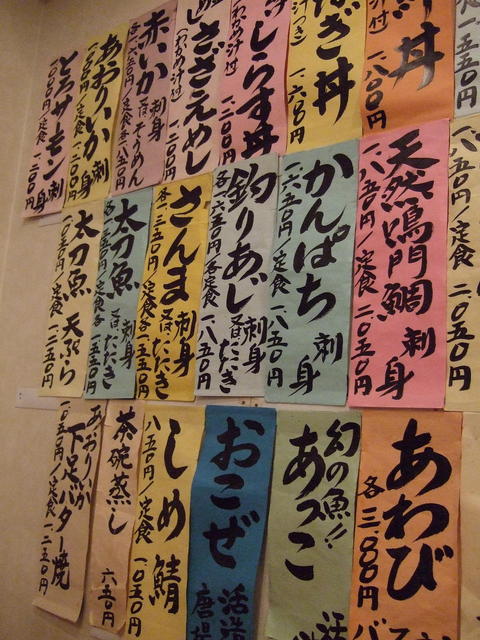 丼
一、八〇〇円
ぎ丼
一、六〇〇円
しらす丼
一、二〇〇円
さざえめし
(わかめ汁付)
赤いか 刺身 又は そうめん
あおりいか 刺身
とろサーモン 刺身
一、〇〇〇円/定食 一、二〇〇円
天然鳴門鯛 刺身
一、八五〇円/定食 二、〇五〇円
かんぱち 刺身
一、六五〇円/定食 一、八五〇円
釣りあじ 刺身 又は たたき
各一、六五〇円/各定食 一、八五〇円
さんま 刺身 又は たたき
各一、二五〇円/定食各一、四五〇円
太刀魚 刺身 又は たたき
太刀魚 天ぷら
一、〇五〇円/定食 一、二五〇円
あわび
各三、〇〇〇円
幻の魚!!
あっこ
おこぜ
しめ鯖
八五〇円/定食 一、〇五〇円
茶碗蒸し
六五〇円
あおりいか
下足バター焼
一、〇五〇円/定食 一、二五〇円